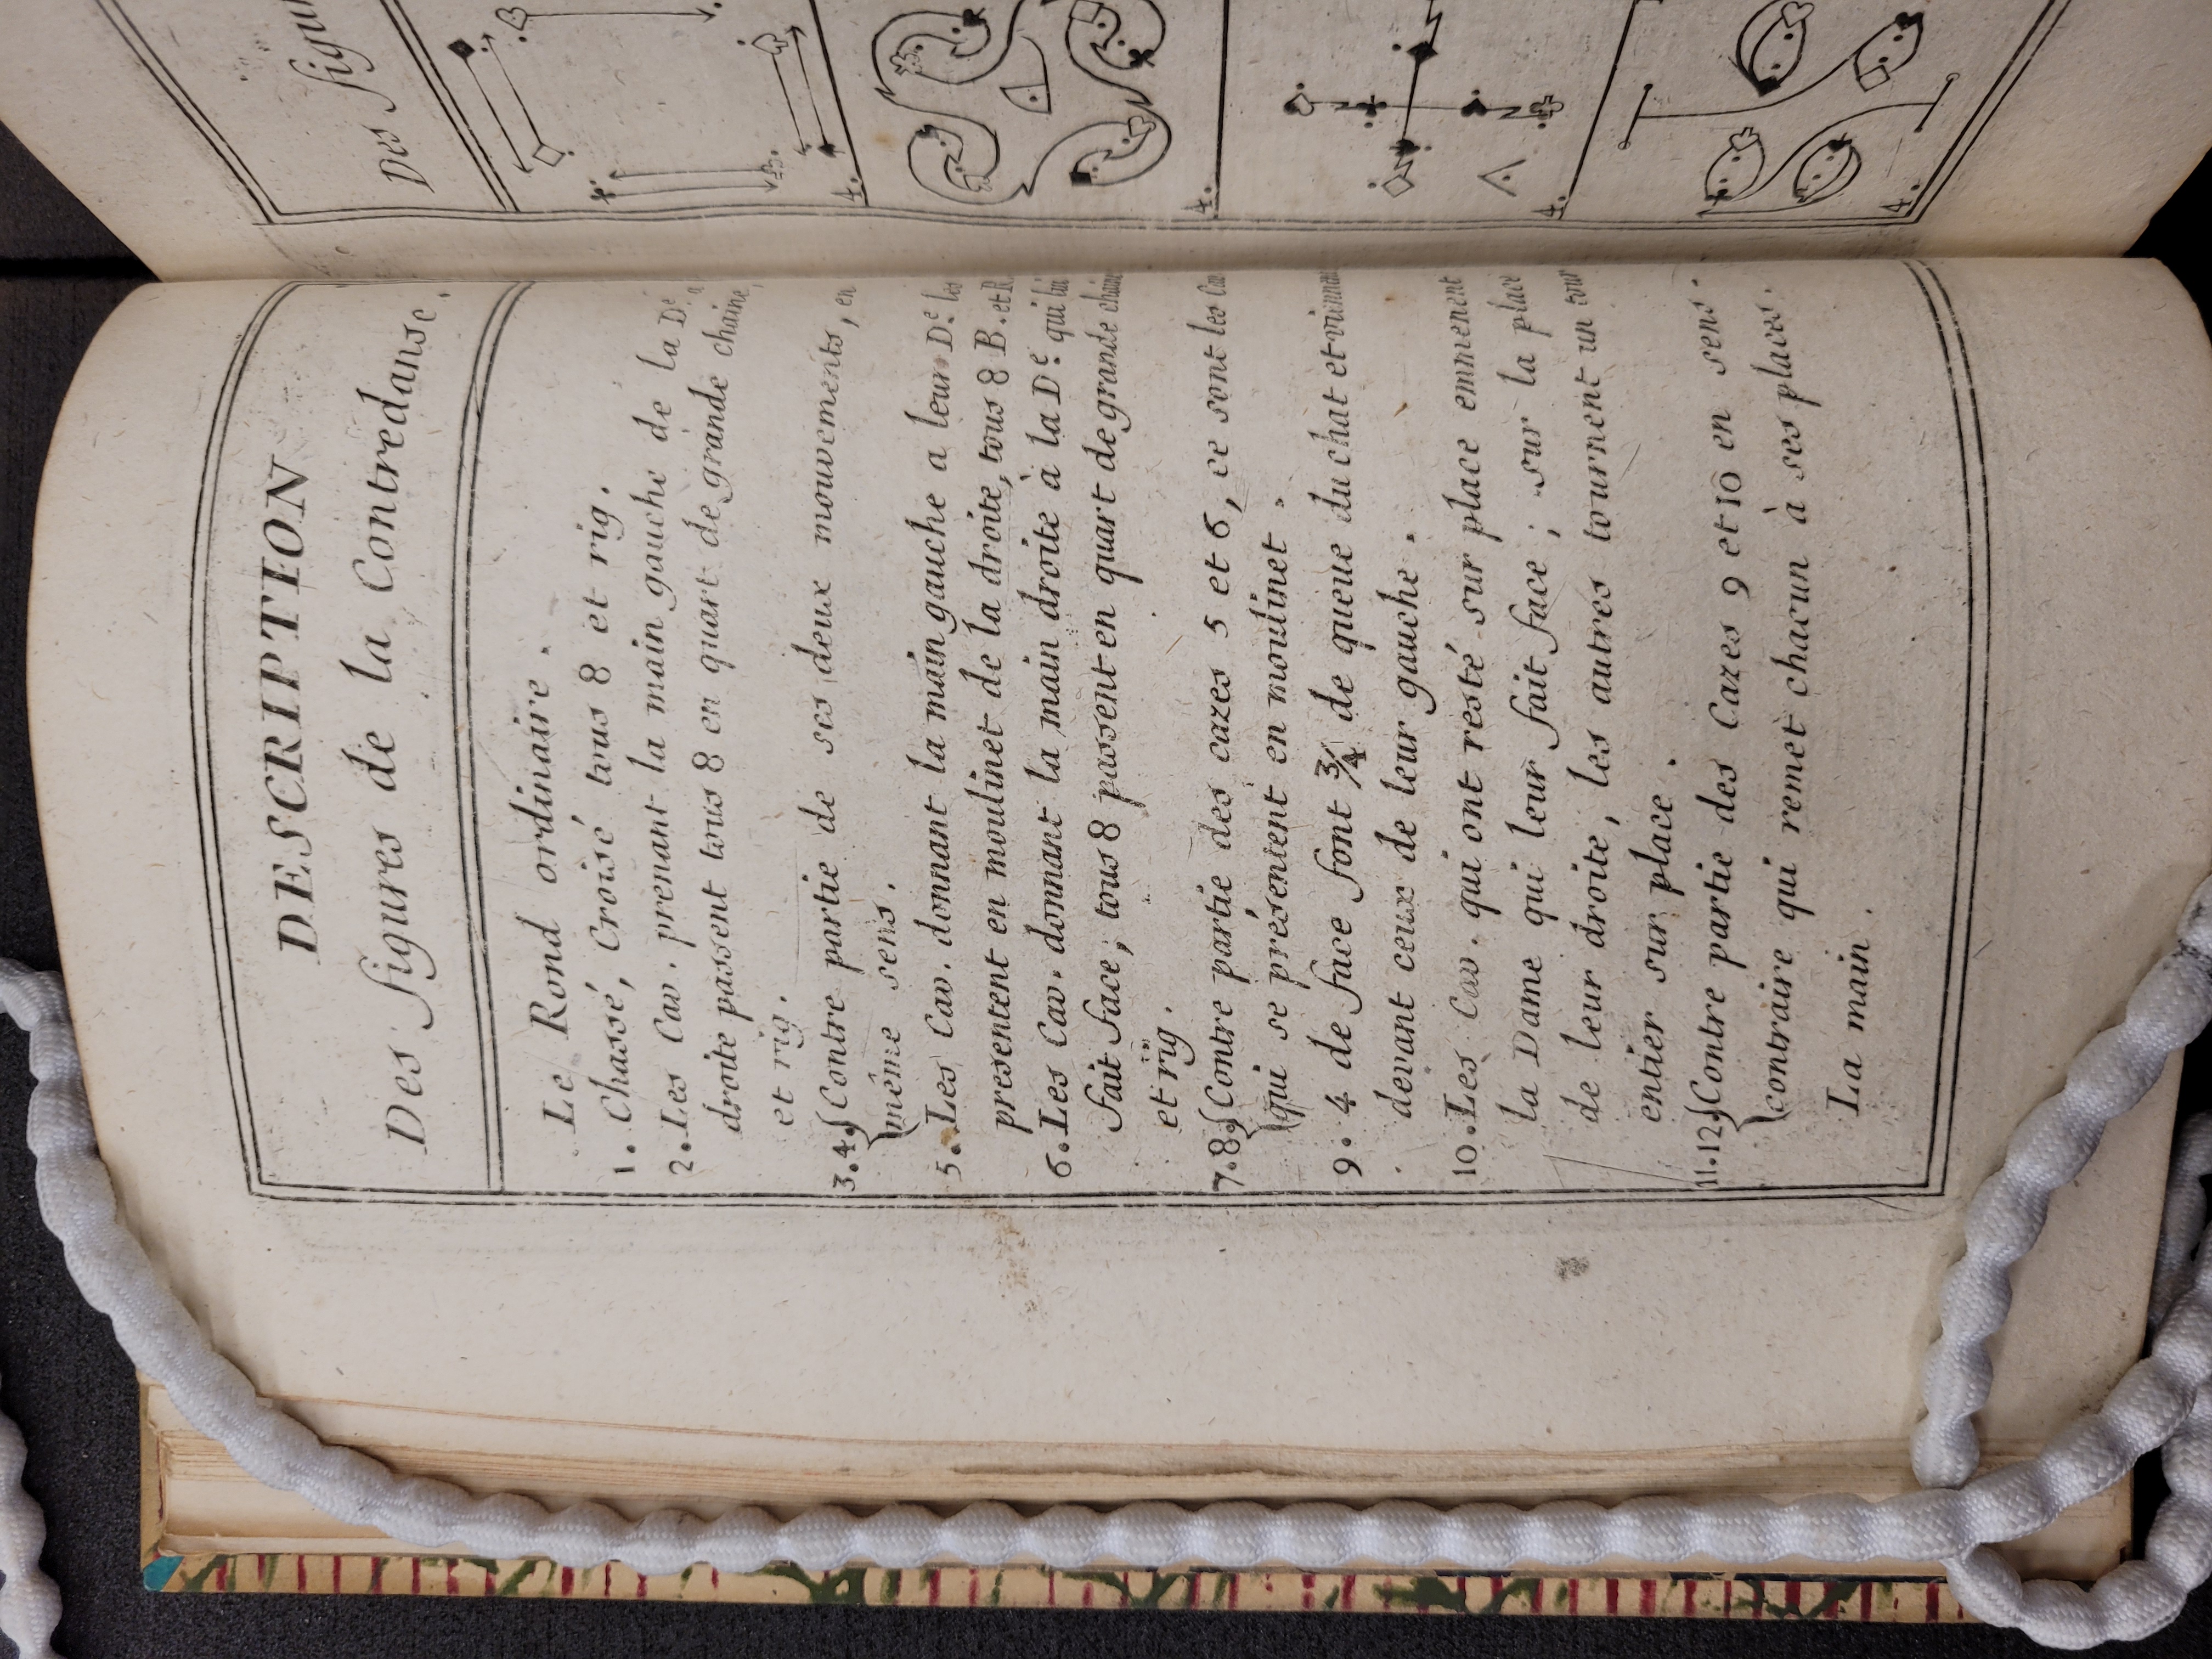 DESCRIPTION
Des figures de la Contredanse.
Le Rond ordinaire.
1. Chassé, Croisé tous 8 et rig.
2. Les Cav. prenant la main gauche de la De.
droite passent tous 8 en quart de grande chaine,
et rig.
3.4. Contre partie de ses deux mouvements, en
même sens.
5. Les Cav. donnant la main gauche a leur De. les
presentent en moulinet de la droite, tous 8 B. et R
6. Les Cav. donnant la main droite à la De. qui lui
fait face; tous 8 passent en quart de grande chaine
et rig.
7.8. Contre partie des cazes 5 et 6, ce sont les Cav
qui se présentent en moulinet.
9. 4 de face font 3/4 de queue du chat et viennent
devant ceux de leur gauche.
10. Les Cav. qui ont resté sur place emmenent
la Dame qui leur fait face; sur la place
de leur droite, les autres tournent un tour
entier sur place.
11.12. Contre partie des Cazes 9 et 10 en sens
contraire qui remet chacun à ses places.
La main.
Des figur
4.
4.
4.
4.